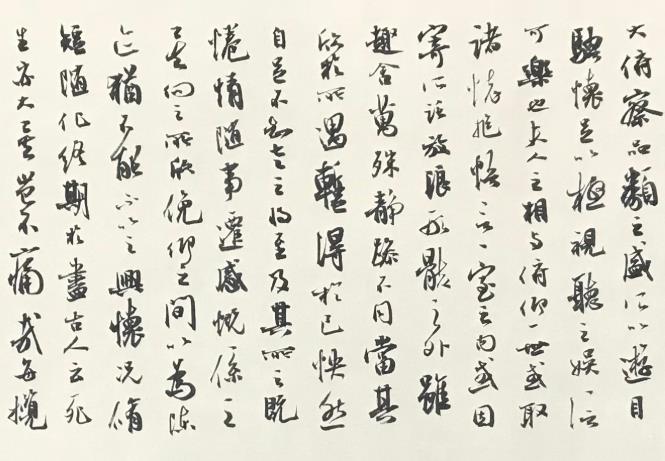 大俯察品類之盛所以遊目
騁懷足以極視聽之娛信
可樂也夫人之相與俯仰一世或取
諸懷抱悟言一室之內或因
寄所託放浪形骸之外雖
趣舍萬殊靜躁不同當其
欣於所遇暫得於己怏然
自足不知老之將至及其所之既
惓情隨事遷感慨係之
矣向之所欣俛仰之間以為陳
迹猶不能不以之興懷況脩
短隨化終期於盡古人云死
生亦大矣豈不痛哉每攬